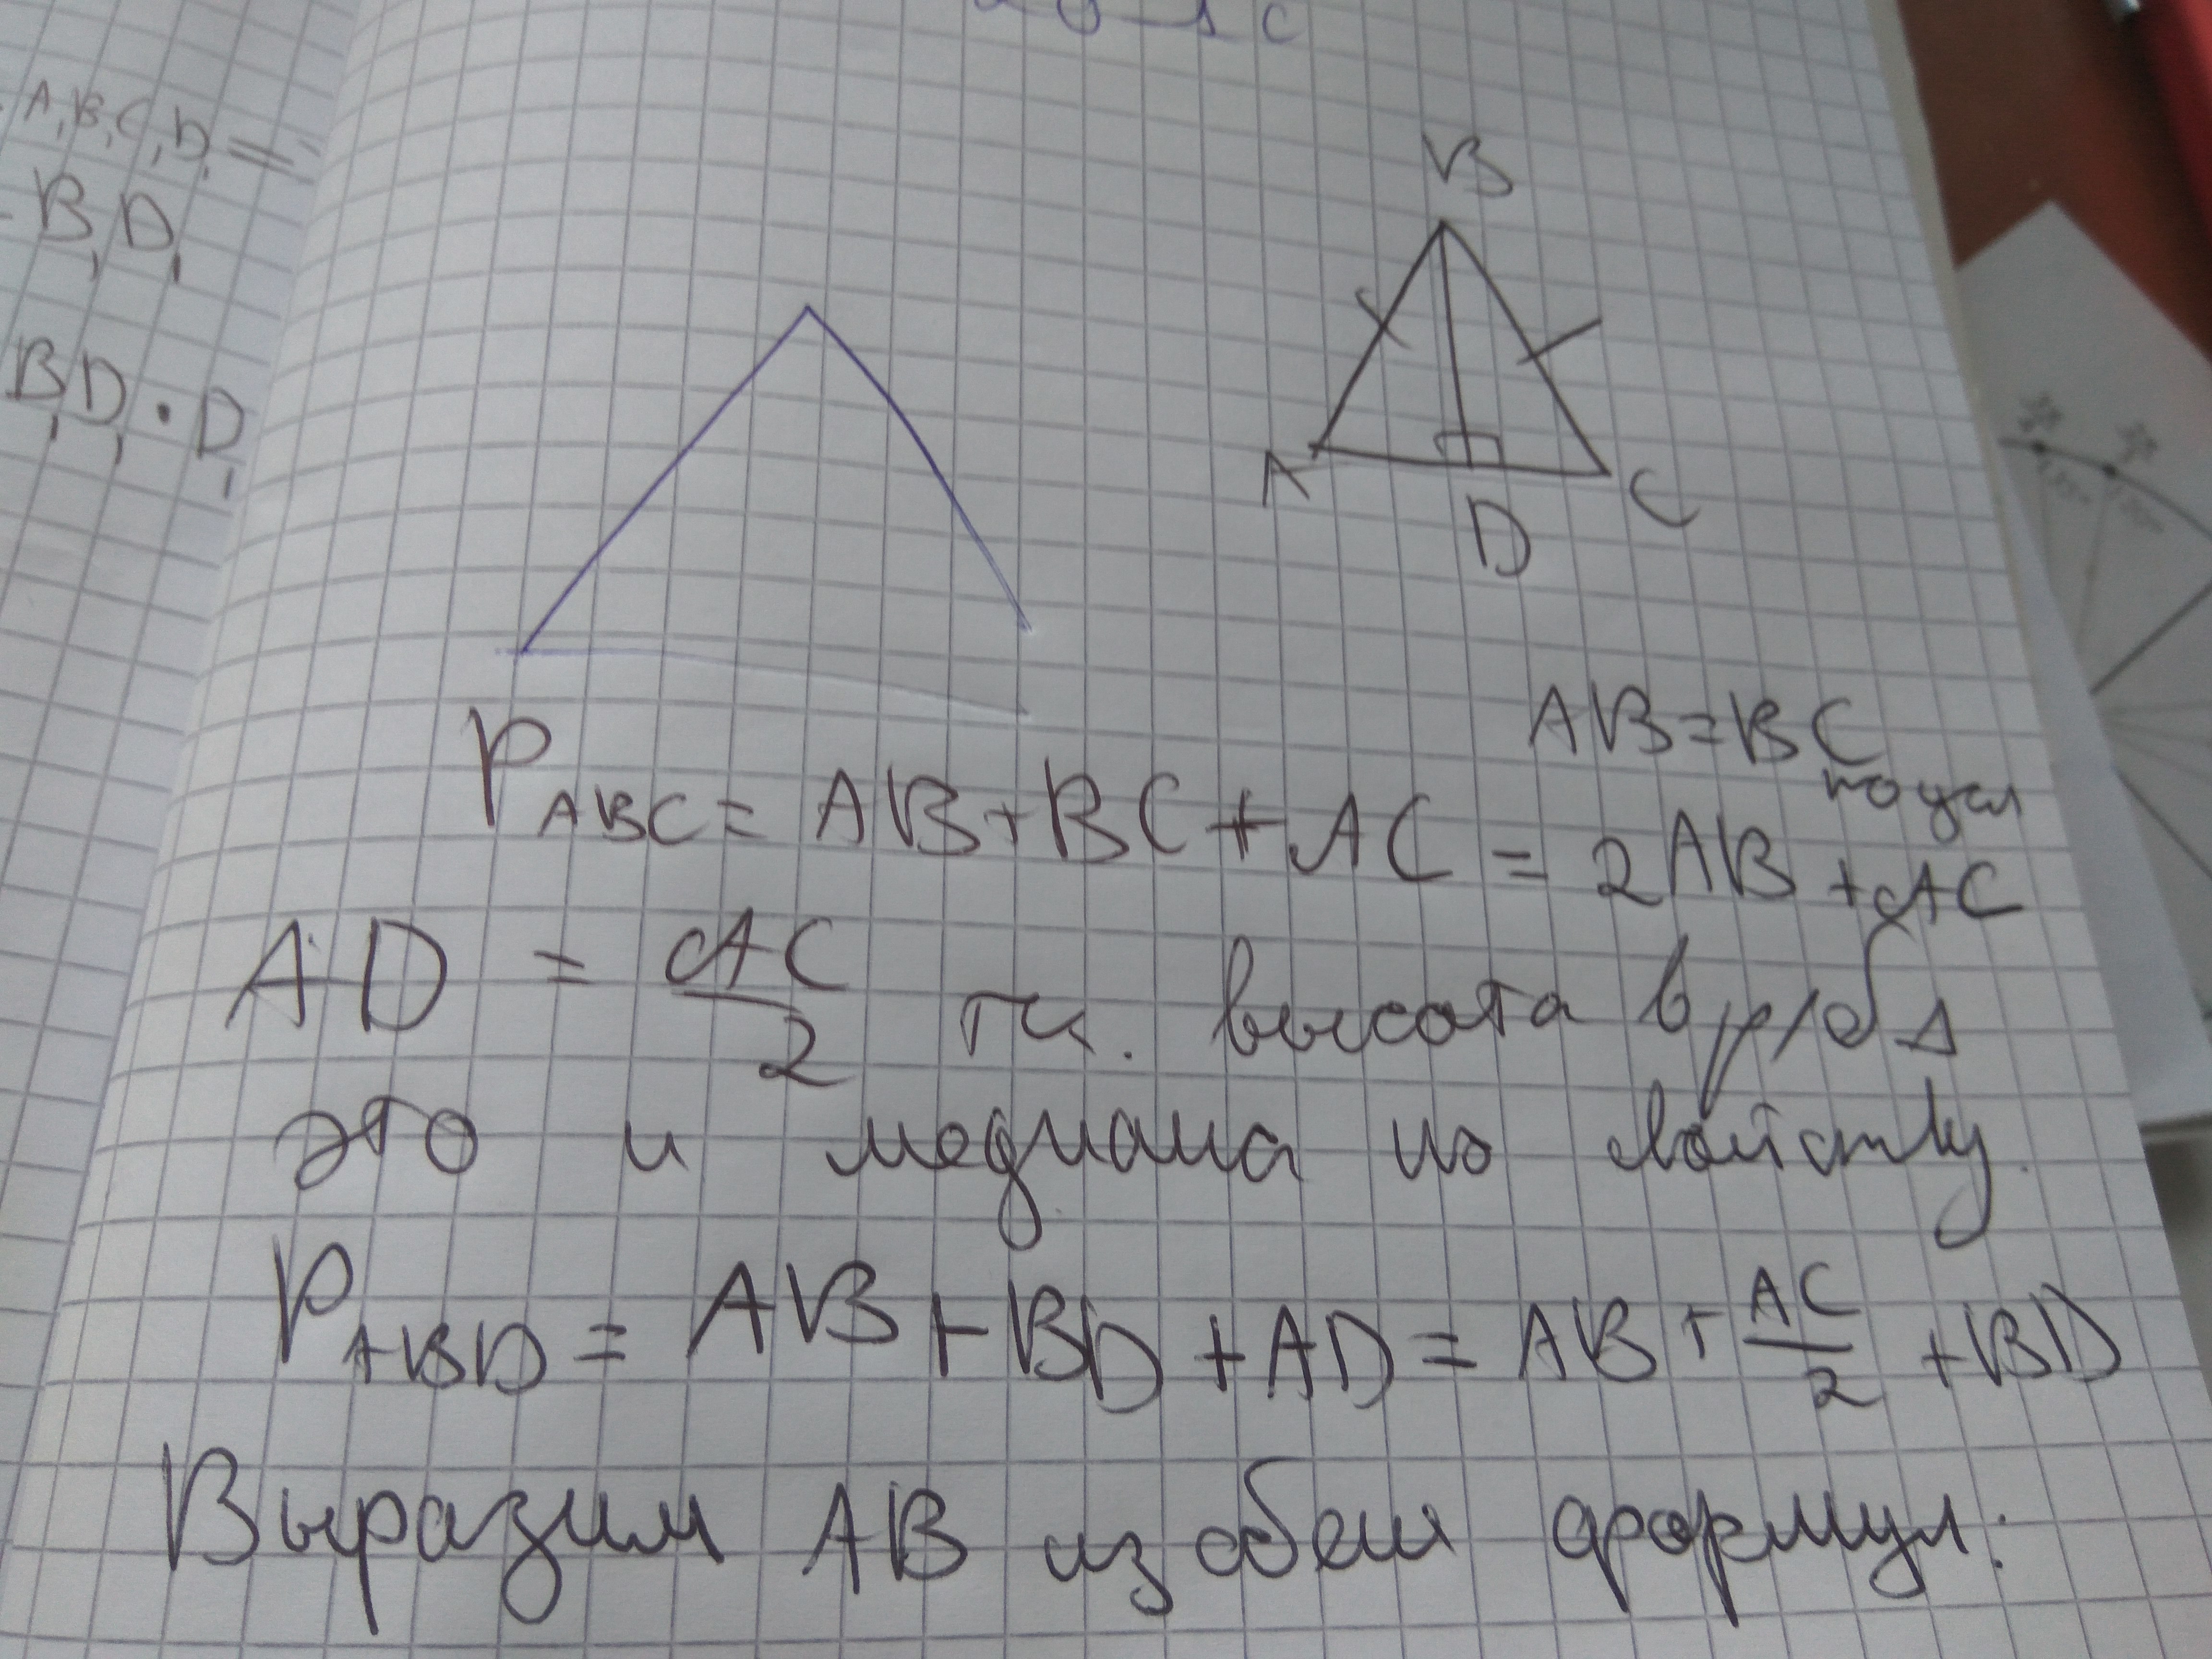 A₁B₁C₁D₁ =
B₁D₁
BD₁ · D₁
B
A
D
C
AB = BC
по усл
P ABC = AB + BC + AC = 2AB + AC
AD = AC/2 т.к. высота в р/б Δ
это и медиана по свойству.
P ABD = AB + BD + AD = AB + AC/2 + BD
Выразим AB из обеи формул: